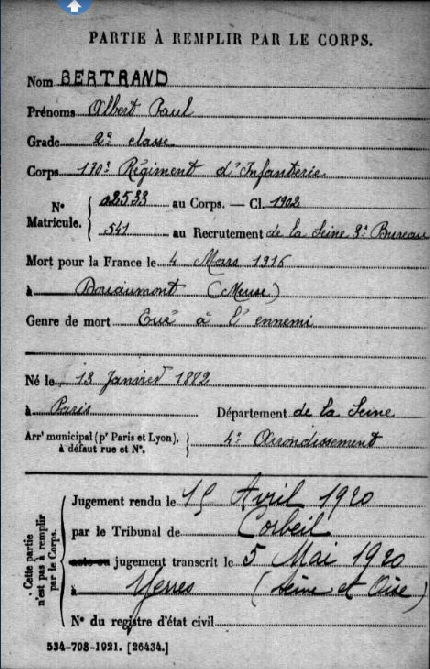 PARTIE À REMPLIR PAR LE CORPS.
Nom BERTRAND
Prénoms Albert Paul
Grade 2e classe
Corps 170e Régiment d'Infanterie
No Matricule. 02533 au Corps. — Cl. 1902
541 au Recrutement de la Seine 3e Bureau
Mort pour la France le 4 Mars 1916
à Douaumont (Meuse)
Genre de mort Tué à l'ennemi
Né le 13 Janvier 1882
à Paris Département de la Seine
Arrt municipal (pr Paris et Lyon), à défaut rue et No. 4e Arrondissement
Cette partie n'est pas à remplir par le Corps.
Jugement rendu le 15 Avril 1920
par le Tribunal de Corbeil
acte ou jugement transcrit le 5 Mai 1920
à Yerres (Seine et Oise)
No du registre d'état civil
534-708-1921. [26434.]